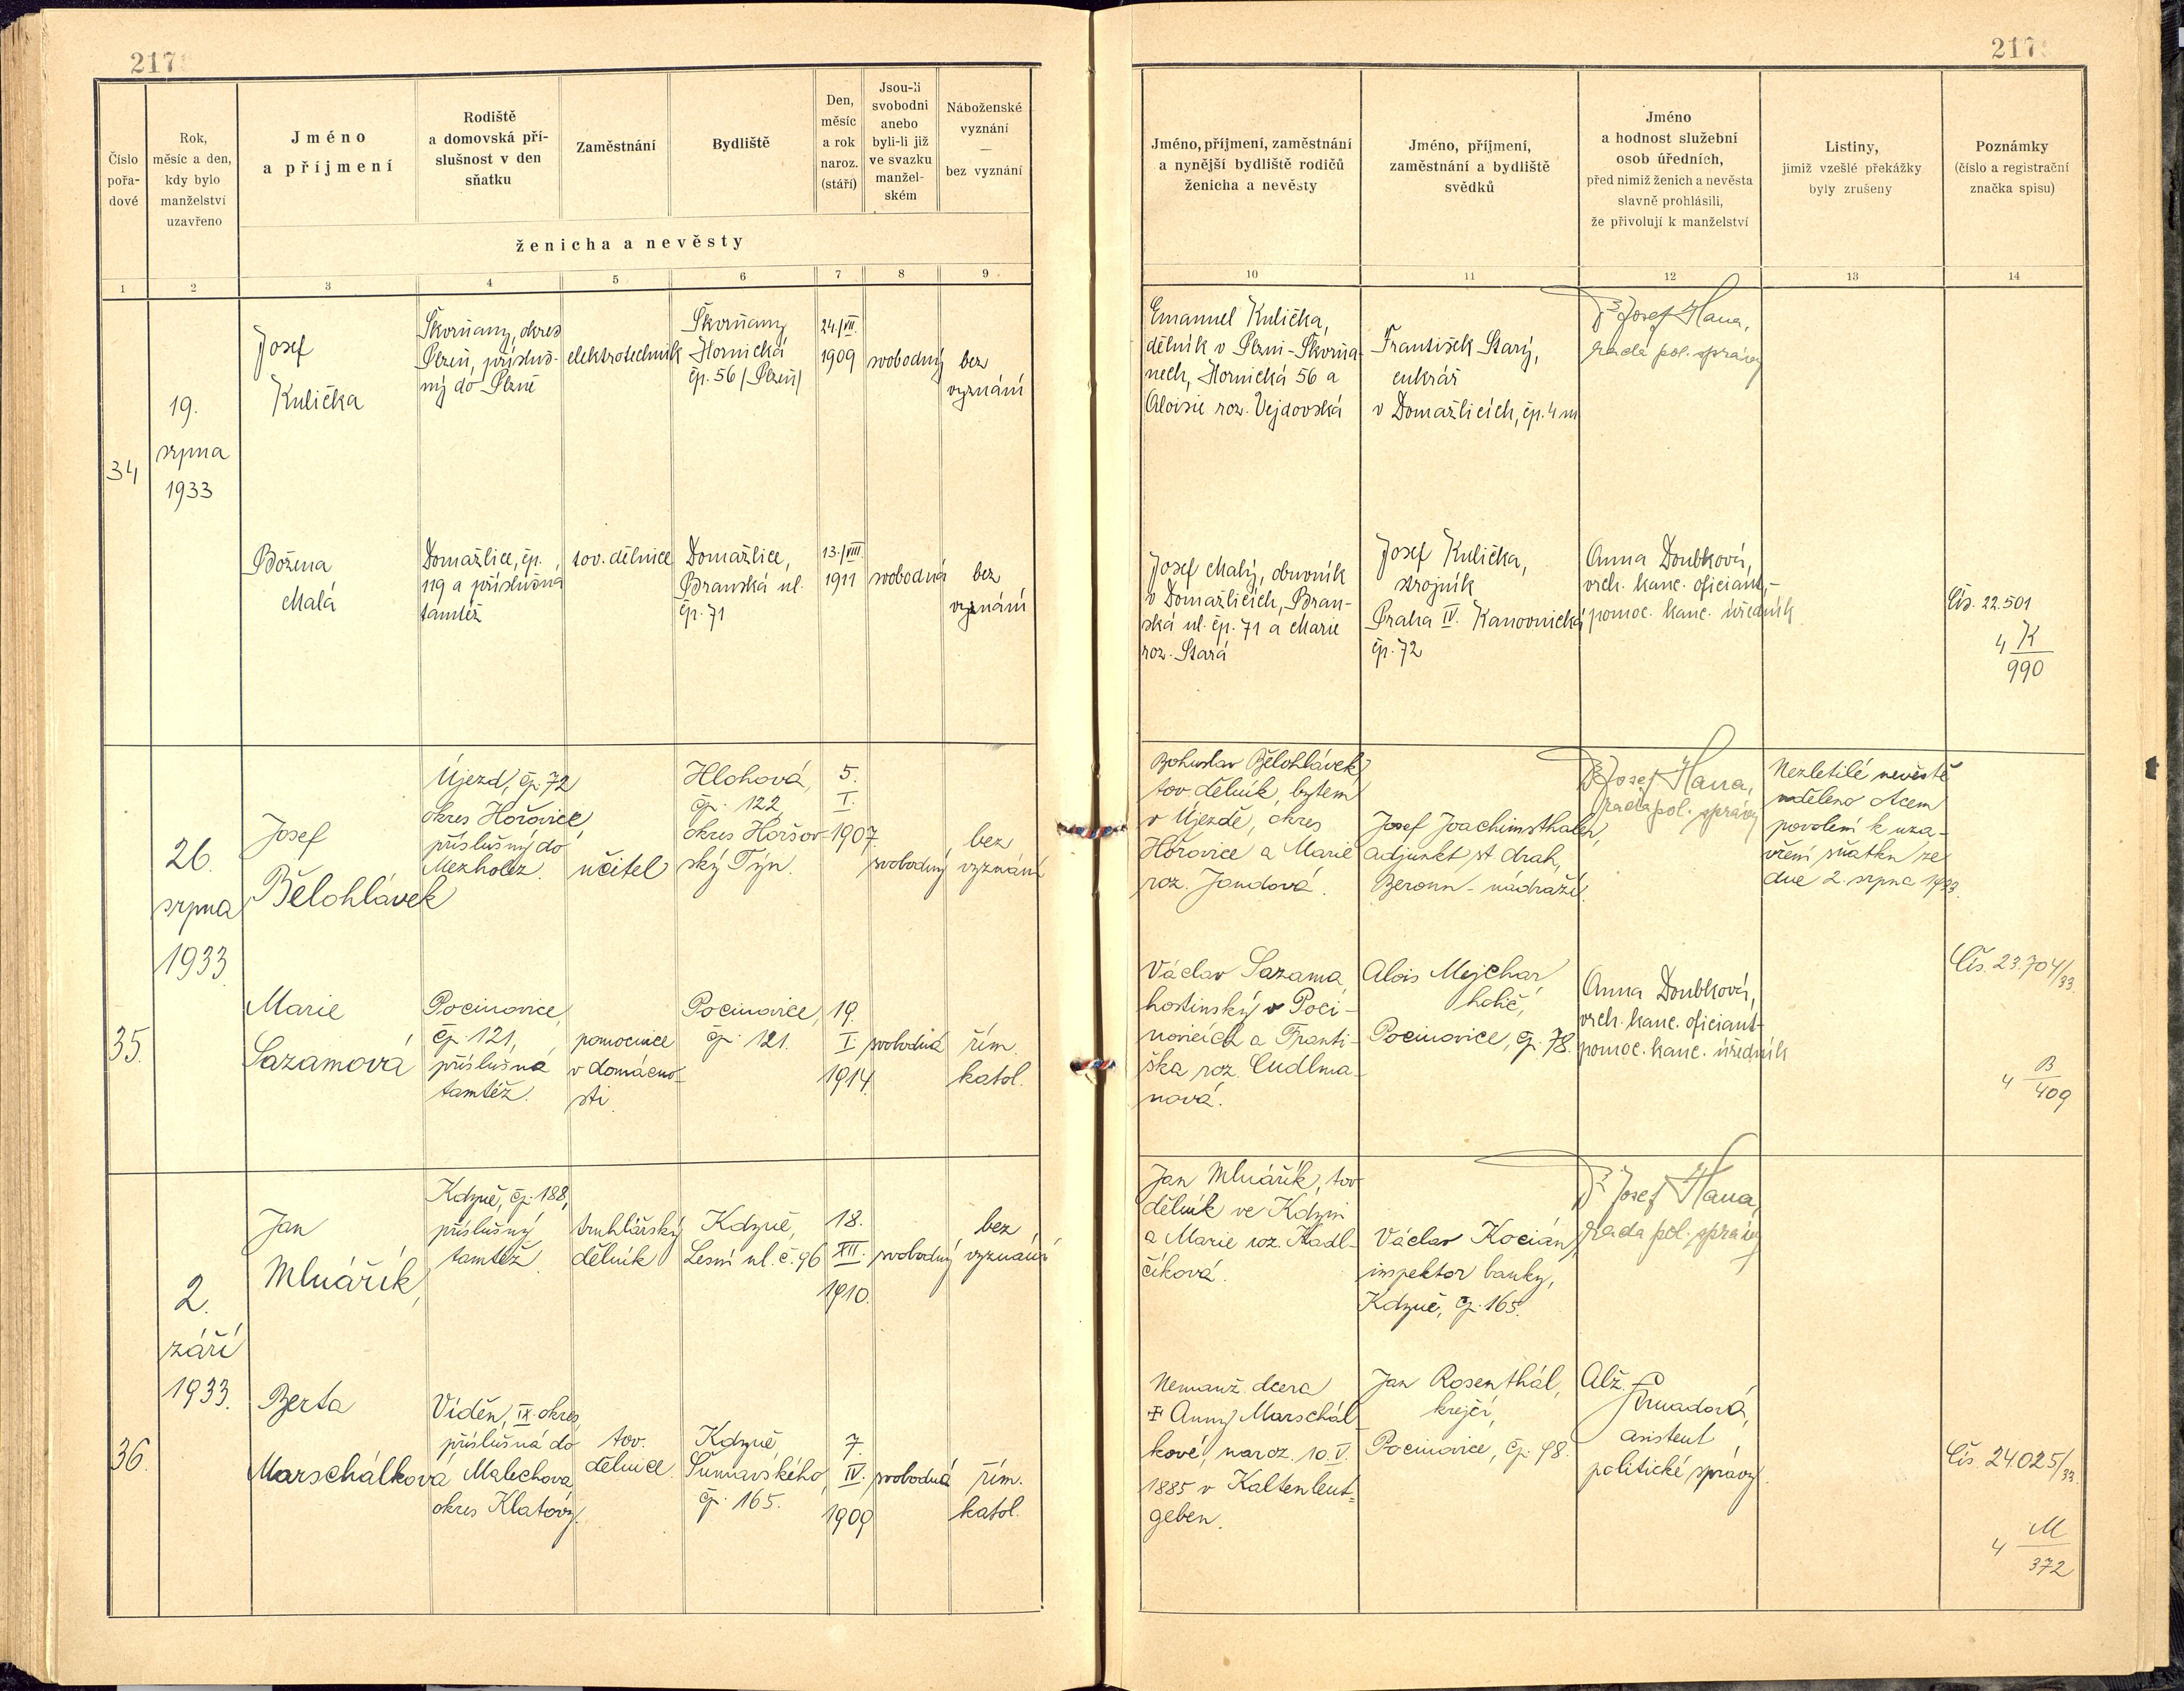 217
217
Číslo
pořa-
dové
Rok,
měsíc a den,
kdy bylo
manželství
uzavřeno
Jméno
a příjmení
Rodiště
a domovská pří-
slušnost v den
sňatku
Zaměstnání
Bydliště
Den,
měsíc
a rok
naroz.
(stáří)
Jsou-li
svobodni
anebo
byli-li již
ve svazku
manžel-
ském
Náboženské
vyznání
—
bez vyznání
ženicha a nevěsty
Jméno, příjmení, zaměstnání
a nynější bydliště rodičů
ženicha a nevěsty
Jméno, příjmení,
zaměstnání a bydliště
svědků
Jméno
a hodnost služební
osob úředních,
před nimiž ženich a nevěsta
slavně prohlásili,
že přivolují k manželství
Listiny,
jimiž vzešlé překážky
byly zrušeny
Poznámky
(číslo a registrační
značka spisu)
1 2 3 4 5 6 7 8 9 10 11 12 13 14
34
19.
srpna
1933
Josef
Kulička
Škvrňany, okres
Plzeň, přísluš-
ný do Plzně
elektrotechnik
Škvrňany
Hornická
čp. 56 /Plzeň/
24./VII.
1909
svobodný
bez
vyznání
Emanuel Kulička,
dělník v Plzni-Škvrňa-
nech, Hornická 56 a
Aloisie roz. Vejdovská
František Starý,
cukrář
v Domažlicích, čp. 4 m
Dr Josef Hana,
rada pol. správy
Božena
Malá
Domažlice, čp.
119 a příslušná
tamtéž
tov. dělnice
Domažlice,
Branská ul.
čp. 71
13./VIII.
1911
svobodná
bez
vyznání
Josef Malý, obuvník
v Domažlicích, Bran-
ská ul. čp. 71 a Marie
roz. Stará
Josef Kulička,
strojník
Praha IV. Kanovnická
čp. 72
Anna Doubková,
vrch. kanc. oficiant,-
pomoc. kanc. úředník
Čís. 22.501
4 K
990
35.
26.
srpna
1933
Josef
Bělohlávek
Újezd, čp. 72
okres Hořovice,
příslušný do
Mezholez.
učitel
Hlohová,
čp. 122,
okres Horšov-
ský Týn.
5.
I.
1907.
svobodný
bez
vyznání
Bohuslav Bělohlávek,
tov. dělník, bytem
v Újezdě, okres
Hořovice a Marie
roz. Jandová.
Josef Joachimsthaler,
adjunkt st. drah,
Beroun-nádraží.
Dr Josef Hana,
rada pol. správy
Nezletilé nevěstě
uděleno otcem
povolení k uza-
vření sňatku ze
dne 2. srpna 1933.
Marie
Sazamová
Pocinovice,
čp. 121,
příslušná
tamtéž.
pomocnice
v domácno-
sti.
Pocinovice,
čp. 121.
19.
I.
1914.
svobodná
řím.
katol.
Václav Sazama,
hostinský v Poci-
novicích a Franti-
ška roz. Cudlma-
nová.
Alois Mejchar,
holič,
Pocinovice, čp. 78.
Anna Doubková,
vrch. kanc. oficiant-
pomoc. kanc. úředník
Čís. 23.704/33.
4 B
409
36.
2.
září
1933.
Jan
Mlnářík,
Kdyně, čp. 188,
příslušný
tamtéž.
truhlářský
dělník
Kdyně,
Lesní ul. č. 96
18.
XII.
1910.
svobodný
bez
vyznání
Jan Mlnářík, tov.
dělník ve Kdyni
a Marie roz. Hadl-
číková.
Václav Kocián,
inspektor banky,
Kdyně, čp. 165.
Dr Josef Hana,
rada pol. správy
Berta
Marschálková
Vídeň, IX. okres,
příslušná do
Malechova,
okres Klatovy.
tov.
dělnice
Kdyně,
Šumavského,
čp. 165.
7.
IV.
1909
svobodná
řím.
katol.
Nemanž. dcera
Anny Marschál-
kové, naroz. 10. V.
1885 v Kaltenleut-
geben.
Jan Rosenthál,
krejčí,
Pocinovice, čp. 98.
Alž.
asistent
politické správy.
Čís. 24.025/33.
4 M
372